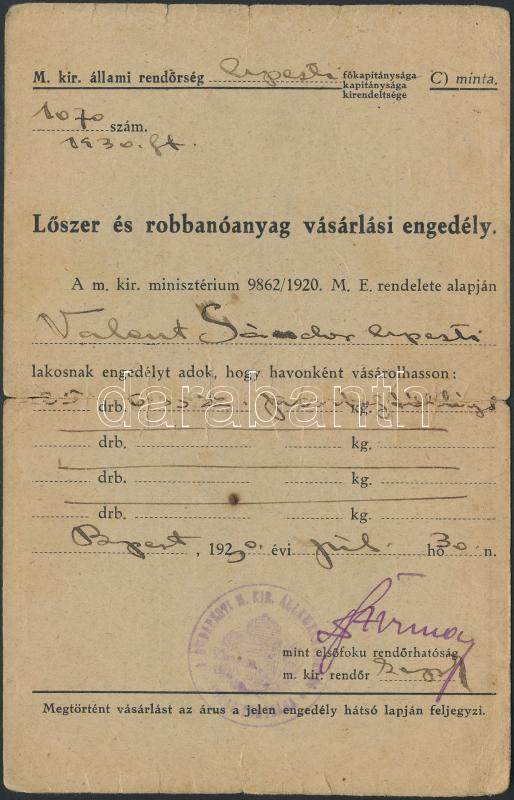 M. kir. állami rendőrség upesti főkapitánysága kapitánysága kirendeltsége C) minta.
1070 szám.
1930.
Lőszer és robbanóanyag vásárlási engedély.
A m. kir. minisztérium 9862/1920. M. E. rendelete alapján
Valent Sándor upesti
lakosnak engedélyt adok, hogy havonként vásárolhasson:
darabanth
25 drb. kg.
drb. kg.
drb. kg.
drb. kg.
Bpest, 1930. évi júl. hó 30 n.
A BUDAPESTI M. KIR. ÁLLAMI
mint elsőfoku rendőrhatóság
m. kir. rendőr
Megtörtént vásárlást az árus a jelen engedély hátsó lapján feljegyzi.